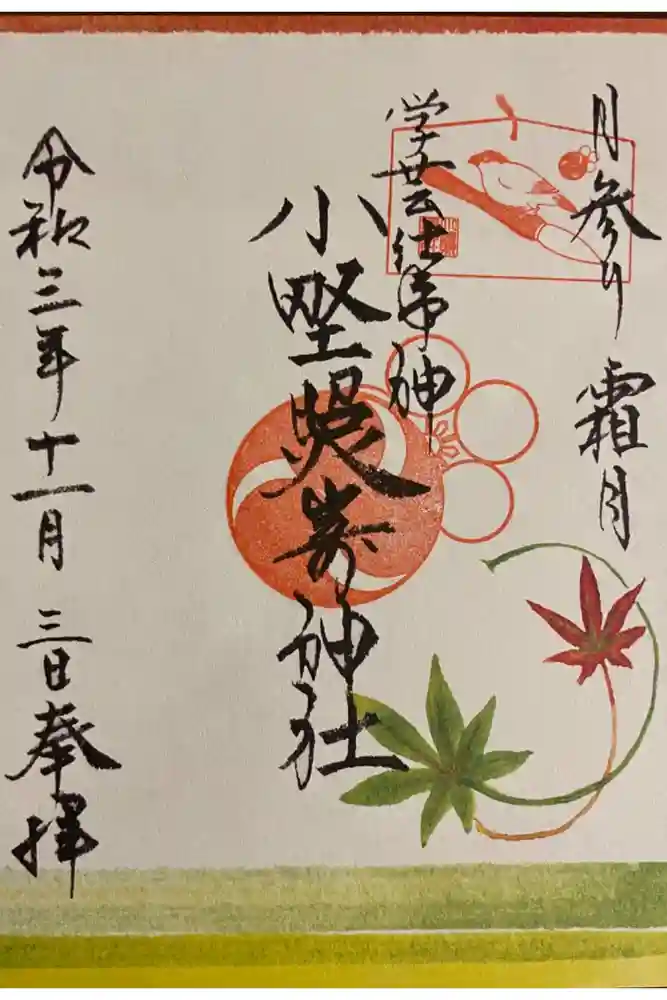 月参り 霜月
学芸仕事神
小野照崎神社
令和三年十一月 三日奉拝